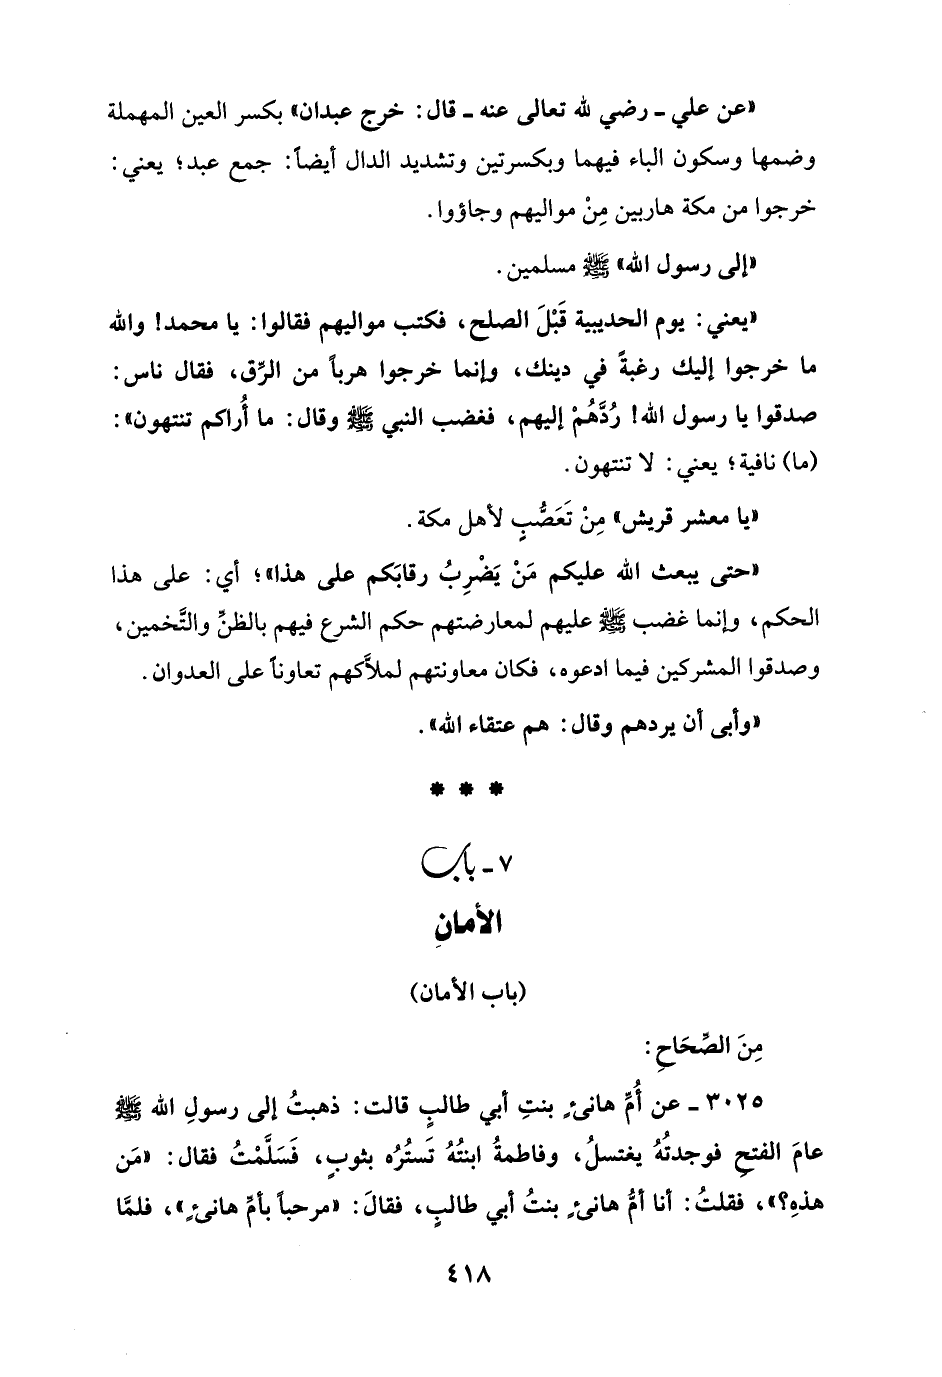 «عن علي ـ رضي لله تعالى عنه ـ قال: خرج عبدان» بكسر العين المهملة
وضمها وسكون الباء فيهما وبكسرتين وتشديد الدال أيضاً: جمع عبد؛ يعني:
خرجوا من مكة هاربين مِنْ مواليهم وجاؤوا.
«إلى رسول الله» ﷺ مسلمين.
«يعني: يوم الحديبية قَبْلَ الصلح، فكتب مواليهم فقالوا: يا محمد! والله
ما خرجوا إليك رغبةً في دينك، وإنما خرجوا هرباً من الرِّق، فقال ناس:
صدقوا يا رسول الله! رُدَّهُمْ إليهم، فغضب النبي ﷺ وقال: ما أُراكم تنتهون»:
(ما) نافية؛ يعني: لا تنتهون.
«يا معشر قريش» مِنْ تَعَصُّبٍ لأهل مكة.
«حتى يبعث الله عليكم مَنْ يَضْرِبُ رقابَكم على هذا»؛ أي: على هذا
الحكم، وإنما غضب ﷺ عليهم لمعارضتهم حكم الشرع فيهم بالظنِّ والتَّخمين،
وصدقوا المشركين فيما ادعوه، فكان معاونتهم لملاَّكهم تعاوناً على العدوان.
«وأبى أن يردهم وقال: هم عتقاء الله».
* * *
٧ ـ باب
الأمانِ
(باب الأمان)
مِنَ الصِّحَاحِ:
٣٠٢٥ ـ عن أُمِّ هانئٍ بنتِ أبي طالبٍ قالت: ذهبتُ إلى رسولِ الله ﷺ
عامَ الفتحِ فوجدتُهُ يغتسلُ، وفاطمةُ ابنتُهُ تَستُرُه بثوبٍ، فَسَلَّمْتُ فقال: «مَن
هذهِ؟»، فقلتُ: أنا أمُّ هانئٍ بنتُ أبي طالبٍ، فقالَ: «مرحباً بأمِّ هانئٍ»، فلمَّا
٤١٨